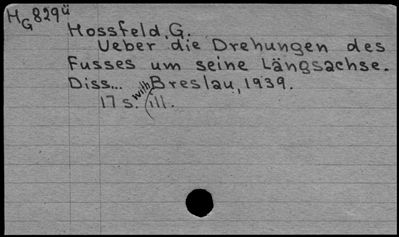 HG829ü
Hossfeld, G.
Ueber die Drehungen des
Fusses um seine Längsachse.
Diss... Breslau, 1939.
17 s. with (ill.